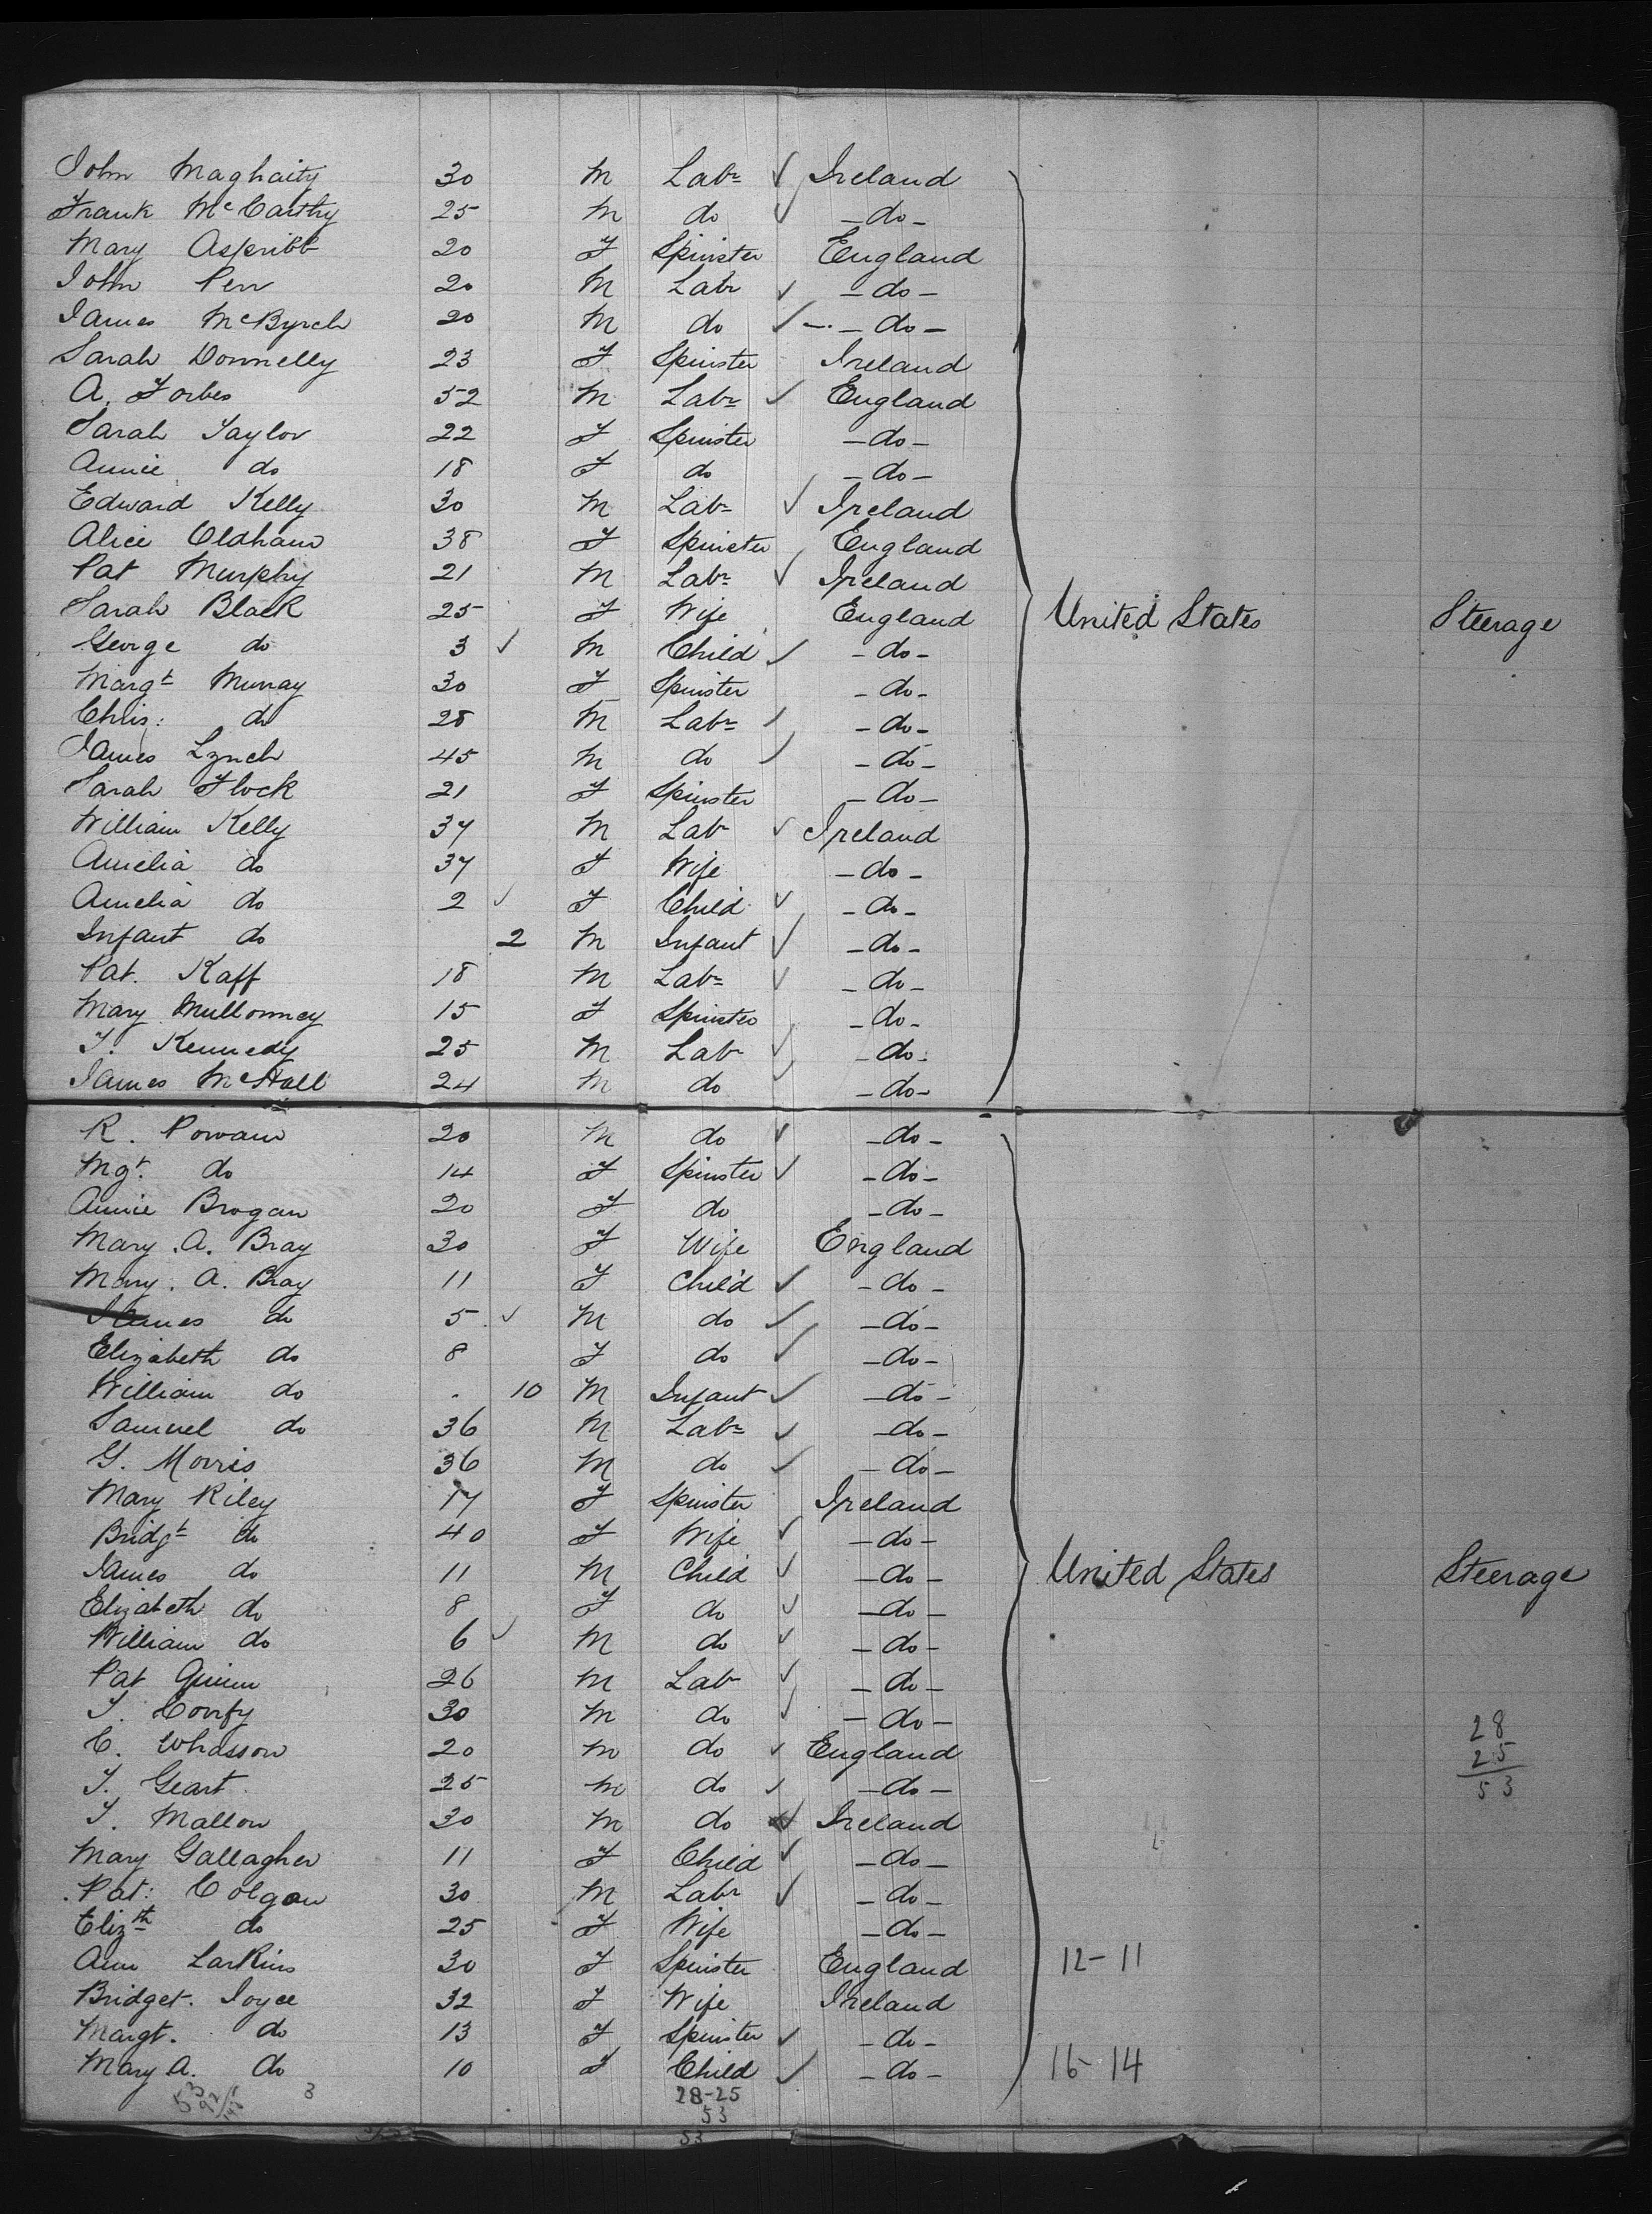 John Maghaity 30 M Labr ✓ Ireland
Frank McCarthy 25 M do ✓ - do -
Mary 20 F Spinster England
John Perr 20 M Labr ✓ - do -
James McByrch 20 M do ✓ - do -
Sarah Donnelly 23 F Spinster Ireland
A. Forbes 52 M Labr ✓ England
Sarah Taylor 22 F Spinster - do -
Annie do 18 F do - do -
Edward Kelly 30 M Labr ✓ Ireland
Alice Oldham 38 F Spinster England
Pat Murphy 21 M Labr ✓ Ireland
Sarah Black 25 F Wife England United States Steerage
George do 3 ✓ M Child ✓ - do -
Margt Murray 30 F Spinster - do -
Chris: do 28 M Labr ✓ - do -
James Lynch 45 M do ✓ - do -
Sarah Flock 21 F Spinster - do -
William Kelly 37 M Labr ✓ Ireland
Amelia do 37 F Wife - do -
Amelia do 2 ✓ F Child ✓ - do -
Infant do 2 M Infant ✓ - do -
Pat. Kaff 18 M Labr ✓ - do -
Mary Mullonney 15 F Spinster - do -
T. Kennedy 25 M Labr ✓ - do -
James McHall 24 M do ✓ - do -
R. Powam 20 M do ✓ - do -
Mgt. do 14 F Spinster ✓ - do -
Annie Brogan 20 F do - do -
Mary. A. Bray 30 F Wife England
Mary. A. Bray 11 F Child ✓ - do -
James do 5 ✓ M do ✓ - do -
Elizabeth do 8 F do ✓ - do -
William do . 10 M Infant ✓ - do -
Samuel do 36 M Labr ✓ - do -
G. Morris 36 M do ✓ - do -
Mary Riley 17 F Spinster Ireland
Bridgt do 40 F Wife ✓ - do -
James do 11 M Child ✓ - do - United States Steerage
Elizabeth do 8 F do ✓ - do -
William do 6 ✓ M do ✓ - do -
Pat Quinn 26 M Labr ✓ - do -
T. 30 M do ✓ - do - 28
C. Whasson 20 M do ✓ England 25
T. Geart 25 M do ✓ - do - 53
T. Mallon 30 M do ✓ Ireland
Mary Gallagher 11 F Child ✓ - do -
Pat: Colgan 30 M Labr ✓ - do -
Elizth do 25 F Wife - do -
Ann Larkins 30 F Spinster England 12-11
Bridget. Joyce 32 F Wife Ireland
Margt. do 13 F Spinster ✓ - do -
Mary A. do 10 F Child ✓ - do - 16-14
53 3 28-25
92 53
145 53